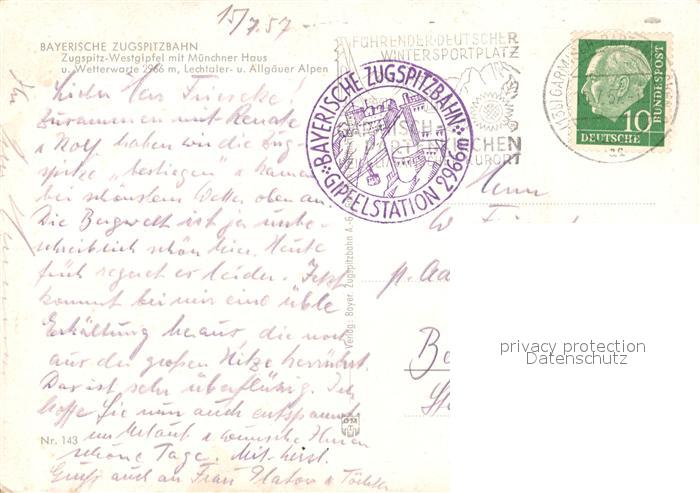 15/7.57
BAYERISCHE ZUGSPITZBAHN
Zugspitz-Westgipfel mit Münchner Haus
u. Wetterwarte 2966 m, Lechtaler- u. Allgäuer Alpen
Lieber Herr
Zusammen mit Renate
& Rolf haben wir die Zug-
spitze "bestiegen" & kamen
bei schönstem Wetter oben an.
Die Bergwelt ist ja unbe-
schreiblich schön hier. Heute
früh regnet es leider. Jetzt
kommt bei mir eine üble
Erkältung heraus, die noch
aus der großen Hitze herrührt.
Das ist sehr überflüssig. Ich
hoffe Sie nun auch entspannt
im Urlaub & wünsche Ihnen
schöne Tage. Mit herzl.
Gruß auch an Frau & Tochter
Nr. 143
Verlag: Bayer. Zugspitzbahn A.-G.
BAYERISCHE ZUGSPITZBAHN
GIPFELSTATION 2966m
FÜHRENDER DEUTSCHER
WINTERSPORTPLATZ
GARMISCH
PARTENKIRCHEN
KURORT
GARMISCH-PARTEN
DEUTSCHE
BUNDESPOST
10
Herrn
privacy protection
Datenschutz